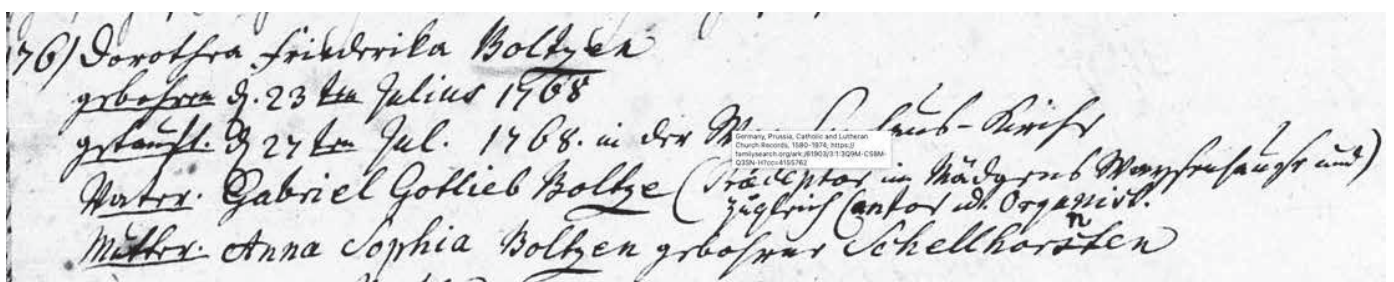 76) Dorothea Friederika Boltzen
gebohren d. 23ten Julius 1768
getauft. d 27ten Jul. 1768. in der Kirche
Germany, Prussia, Catholic and Lutheran
Church Records, 1590-1974, https://
familysearch.org/ark:/61903/3:1:3Q9M-CS8M-
Q3SN-H?cc=4155762
Vater. Gabriel Gotlieb Boltze (Präceptor im Mädgens Waysenhause und)
zugleich Cantor u. Organist.
Mutter. Anna Sophia Boltzen gebohrne Schellhornsten